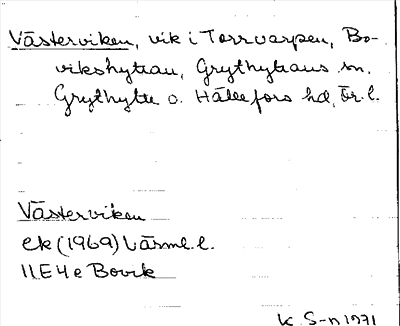 Västerviken, vik i Torrvarpen, Bo-
vikshyttan, Grythyttans sn.
Grythytte o. Hällefors hd, Ör. l.
Västerviken
ek (1969) Värml. l.
11E4e Bovik
K. S-n 1971